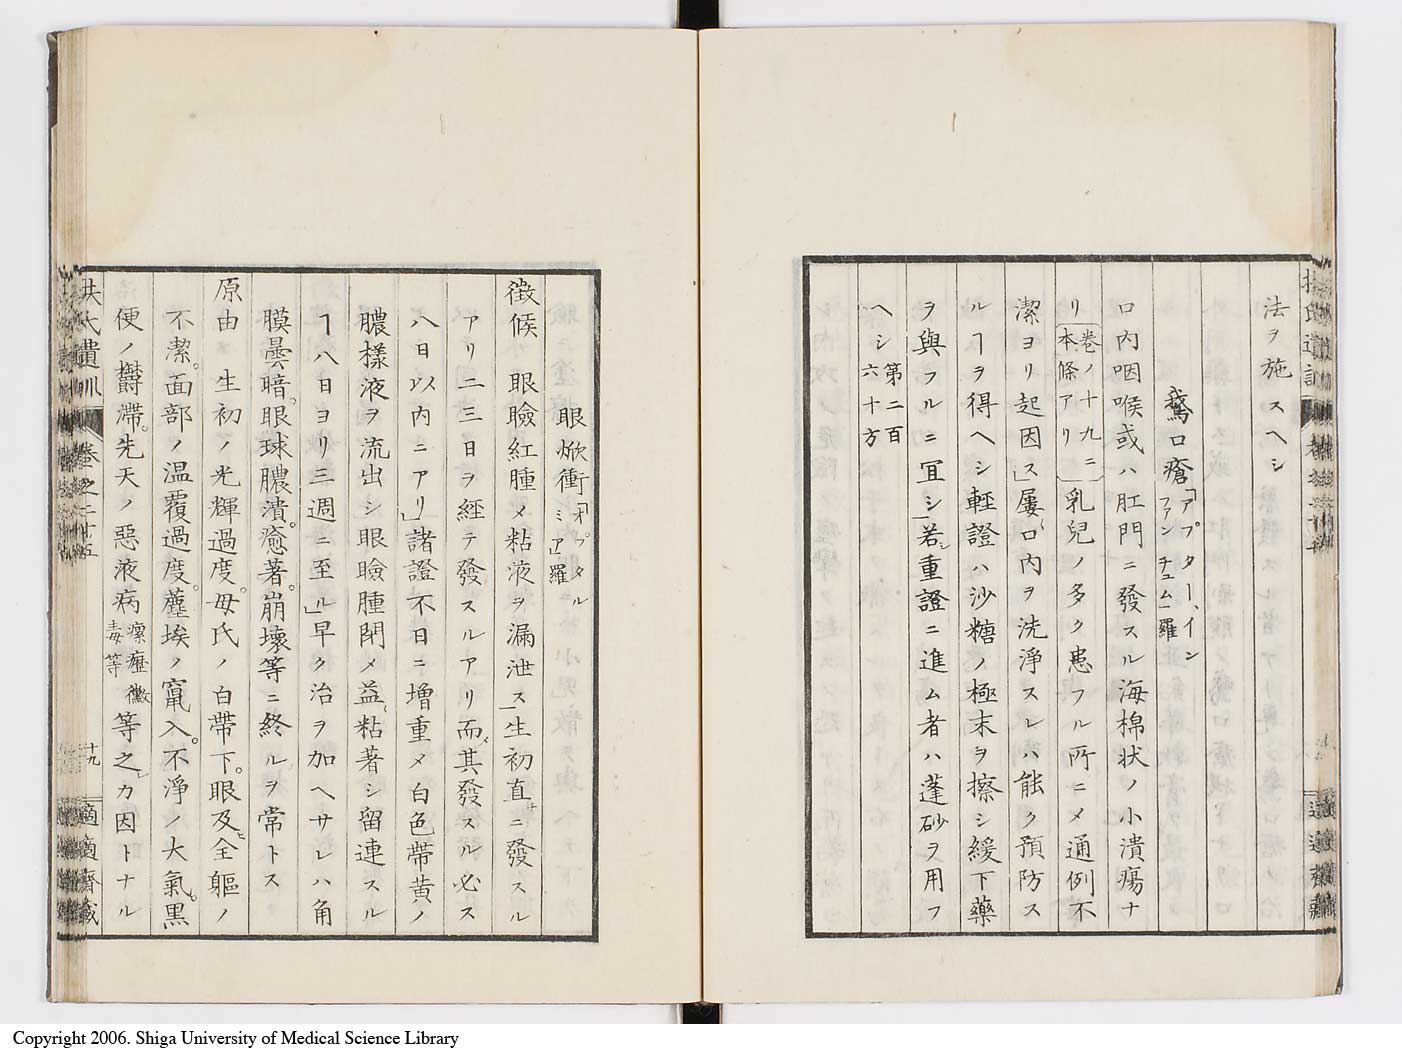 法ヲ施スヘシ
鵞口瘡「アプターイン
ファンチュム」羅
口内咽喉或ハ肛門ニ發スル海棉状ノ小潰瘍ナ
リ卷ノ十九ニ
本條アリ乳兒ノ多ク患フル所ニメ通例不
潔ヨリ起因ス」屢口内ヲ洗淨スレハ能ク預防ス
ルヿヲ得ヘシ輕證ハ沙糖ノ極末ヲ擦シ緩下藥
ヲ與フルニ冝シ」若シ重證ニ進ム者ハ蓬砂ヲ用フ
ヘシ第二百
六十方
眼焮衝「オプタル
ミア」羅
徴候 眼瞼紅腫メ粘液ヲ漏泄ス」生初直チニ發スル
アリ二三日ヲ經テ發スルアリ而メ其發スル必ス
八日以内ニアリ」諸證不日ニ増重メ白色帶黄ノ
膿樣液ヲ流出シ眼瞼腫閉メ益粘著シ留連スル
ヿ八日ヨリ三週ニ至ル」早ク治ヲ加ヘサレハ角
膜曇暗。眼球膿潰。癒著。崩壞等ニ終ルヲ常トス
原由 生初ノ光輝過度。母氏ノ白帶下。眼及ヒ全軀ノ
不潔。面部ノ温覆過度。塵埃ノ竄入。不淨ノ大氣。黒
便ノ鬱滯。先天ノ惡液病瘰癧黴
毒等等之レカ因トナル
扶氏遺訓 卷之二十五 十九 適適齋藏